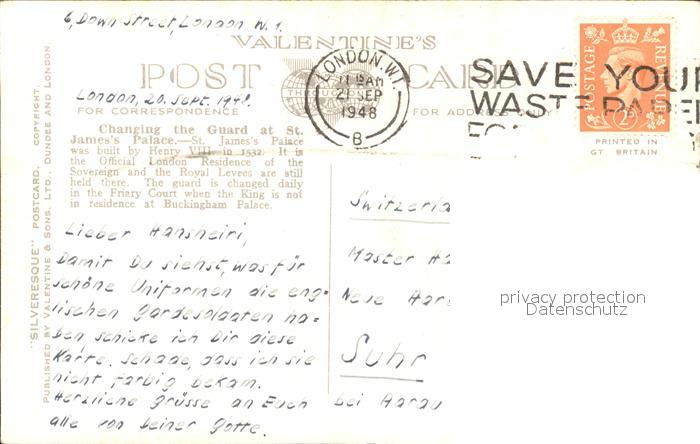 6, Down Street, London W. 1.
VALENTINE'S
POST CARD
London, 20. Sept. 1948.
FOR CORRESPONDENCE
FOR ADDRESS ONLY
LONDON. W.1.
11 15 AM
21 SEP
1948
B
SAVE YOUR
WASTE PAPER
FOR
POSTAGE
REVENUE
2D
PRINTED IN
GT. BRITAIN
"SILVERESQUE" POSTCARD. COPYRIGHT.
PUBLISHED BY VALENTINE & SONS, LTD., DUNDEE AND LONDON
Changing the Guard at St.
James's Palace.—St. James's Palace
was built by Henry VIII. in 1532. It is
the Official London Residence of the
Sovereign and the Royal Levees are still
held there. The guard is changed daily
in the Friary Court when the King is not
in residence at Buckingham Palace.
Lieber Hansheiri,
Damit Du siehst, was für
schöne Uniformen die eng=
lischen Gardesoldaten ha=
ben, schicke ich Dir diese
Karte. Schade, dass ich sie
nicht farbig bekam.
Herzliche Grüsse an Euch
alle von Deiner Gotte.
Switzerla
Master Ha
Neue Aar
Suhr
bei Aarau
privacy protection
Datenschutz